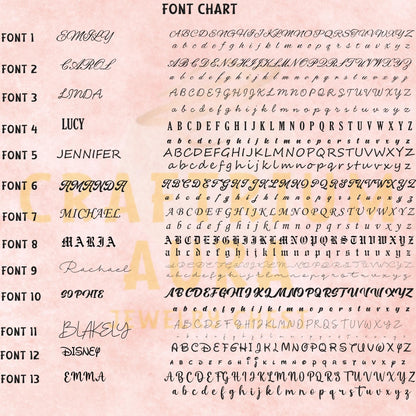 FONT CHART
FONT 1 EMILY ABCDEFGHIJKLMNOPQRSTUVWXYZ
abcdefghijklmnopqrstuvwxyz
FONT 2 CAROL ABCDEFGHIJKLMNOPQRSTUVWXYZ
abcdefghijklmnopqrstuvwxyz
FONT 3 LINDA ABCDEFGHIJKLMNOPQRSTUVWXYZ
abcdefghijklmnopqrstuvwxyz
FONT 4 LUCY ABCDEFGHIJKLMNOPQRSTUVWXYZ
abcdefghijklmnopqrstuvwxyz
FONT 5 JENNIFER ABCDEFGHIJKLMNOPQRSTUVWXYZ
abcdefghijklmnopqrstuvwxyz
FONT 6 AMANDA ABCDEFGHIJKLMNOPQRSTUVWXYZ
abcdefghijklmnopqrstuvwxyz
FONT 7 MICHAEL ABCDEFGHIJKLMNOPQRSTUVWXYZ
abcdefghijklmnopqrstuvwxyz
FONT 8 MARIA ABCDEFGHIJKLMNOPQRSTUVWXYZ
abcdefghijklmnopqrstuvwxyz
FONT 9 Rachael ABCDEFGHIJKLMNOPQRSTUVWXYZ
abcdefghijklmnopqrstuvwxyz
FONT 10 SOPHIE ABCDEFGHIJKLMNOPQRSTUVWXYZ
abcdefghijklmnopqrstuvwxyz
FONT 11 BLAKELY ABCDEFGHIJKLMNOPQRSTUVWXYZ
abcdefghijklmnopqrstuvwxyz
FONT 12 DISNEY ABCDEFGHIJKLMNOPQRSTUVWXYZ
abcdefghijklmnopqrstuvwxyz
FONT 13 EMMA ABCDEFGHIJKLMNOPQRSTUVWXYZ
abcdefghijklmnopqrstuvwxyz